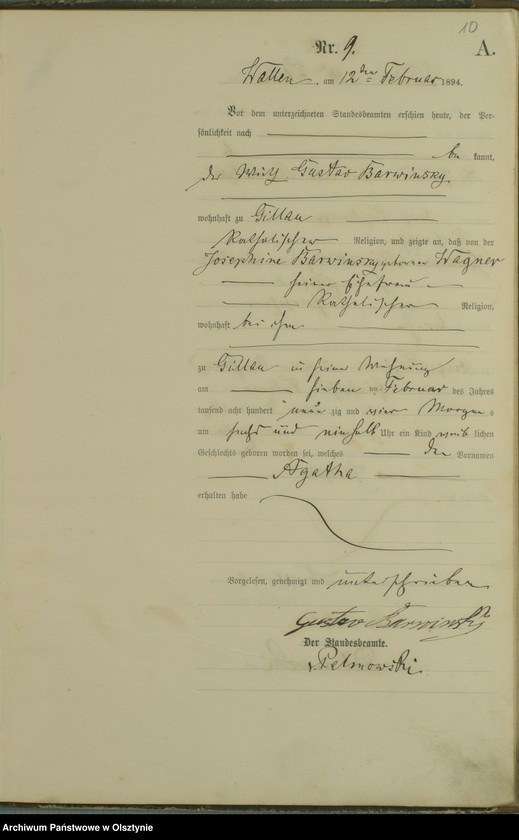 10
Nr. 9. A.
Wallen am 12ten Februar 1894.
Vor dem unterzeichneten Standesbeamten erschien heute, der Per-
sönlichkeit nach
be kannt,
der Wirth Gustav Barwinsky
wohnhaft zu Gillau
Katholischer Religion, und zeigte an, daß von der
Josephine Barwinsky geborenen Wagner
seiner Ehefrau
Katholischer Religion,
wohnhaft bei ihm
zu Gillau in seiner Wohnung
am sieben ten Februar des Jahres
tausend acht hundert neun zig und vier Morgen s
um sechs und einhalb Uhr ein Kind weib lichen
Geschlechts geboren worden sei, welches den Vornamen
Agatha
erhalten habe
Vorgelesen, genehmigt und unterschrieben
Gustav Barwinski
Der Standesbeamte.
Archiwum Państwowe w Olsztynie